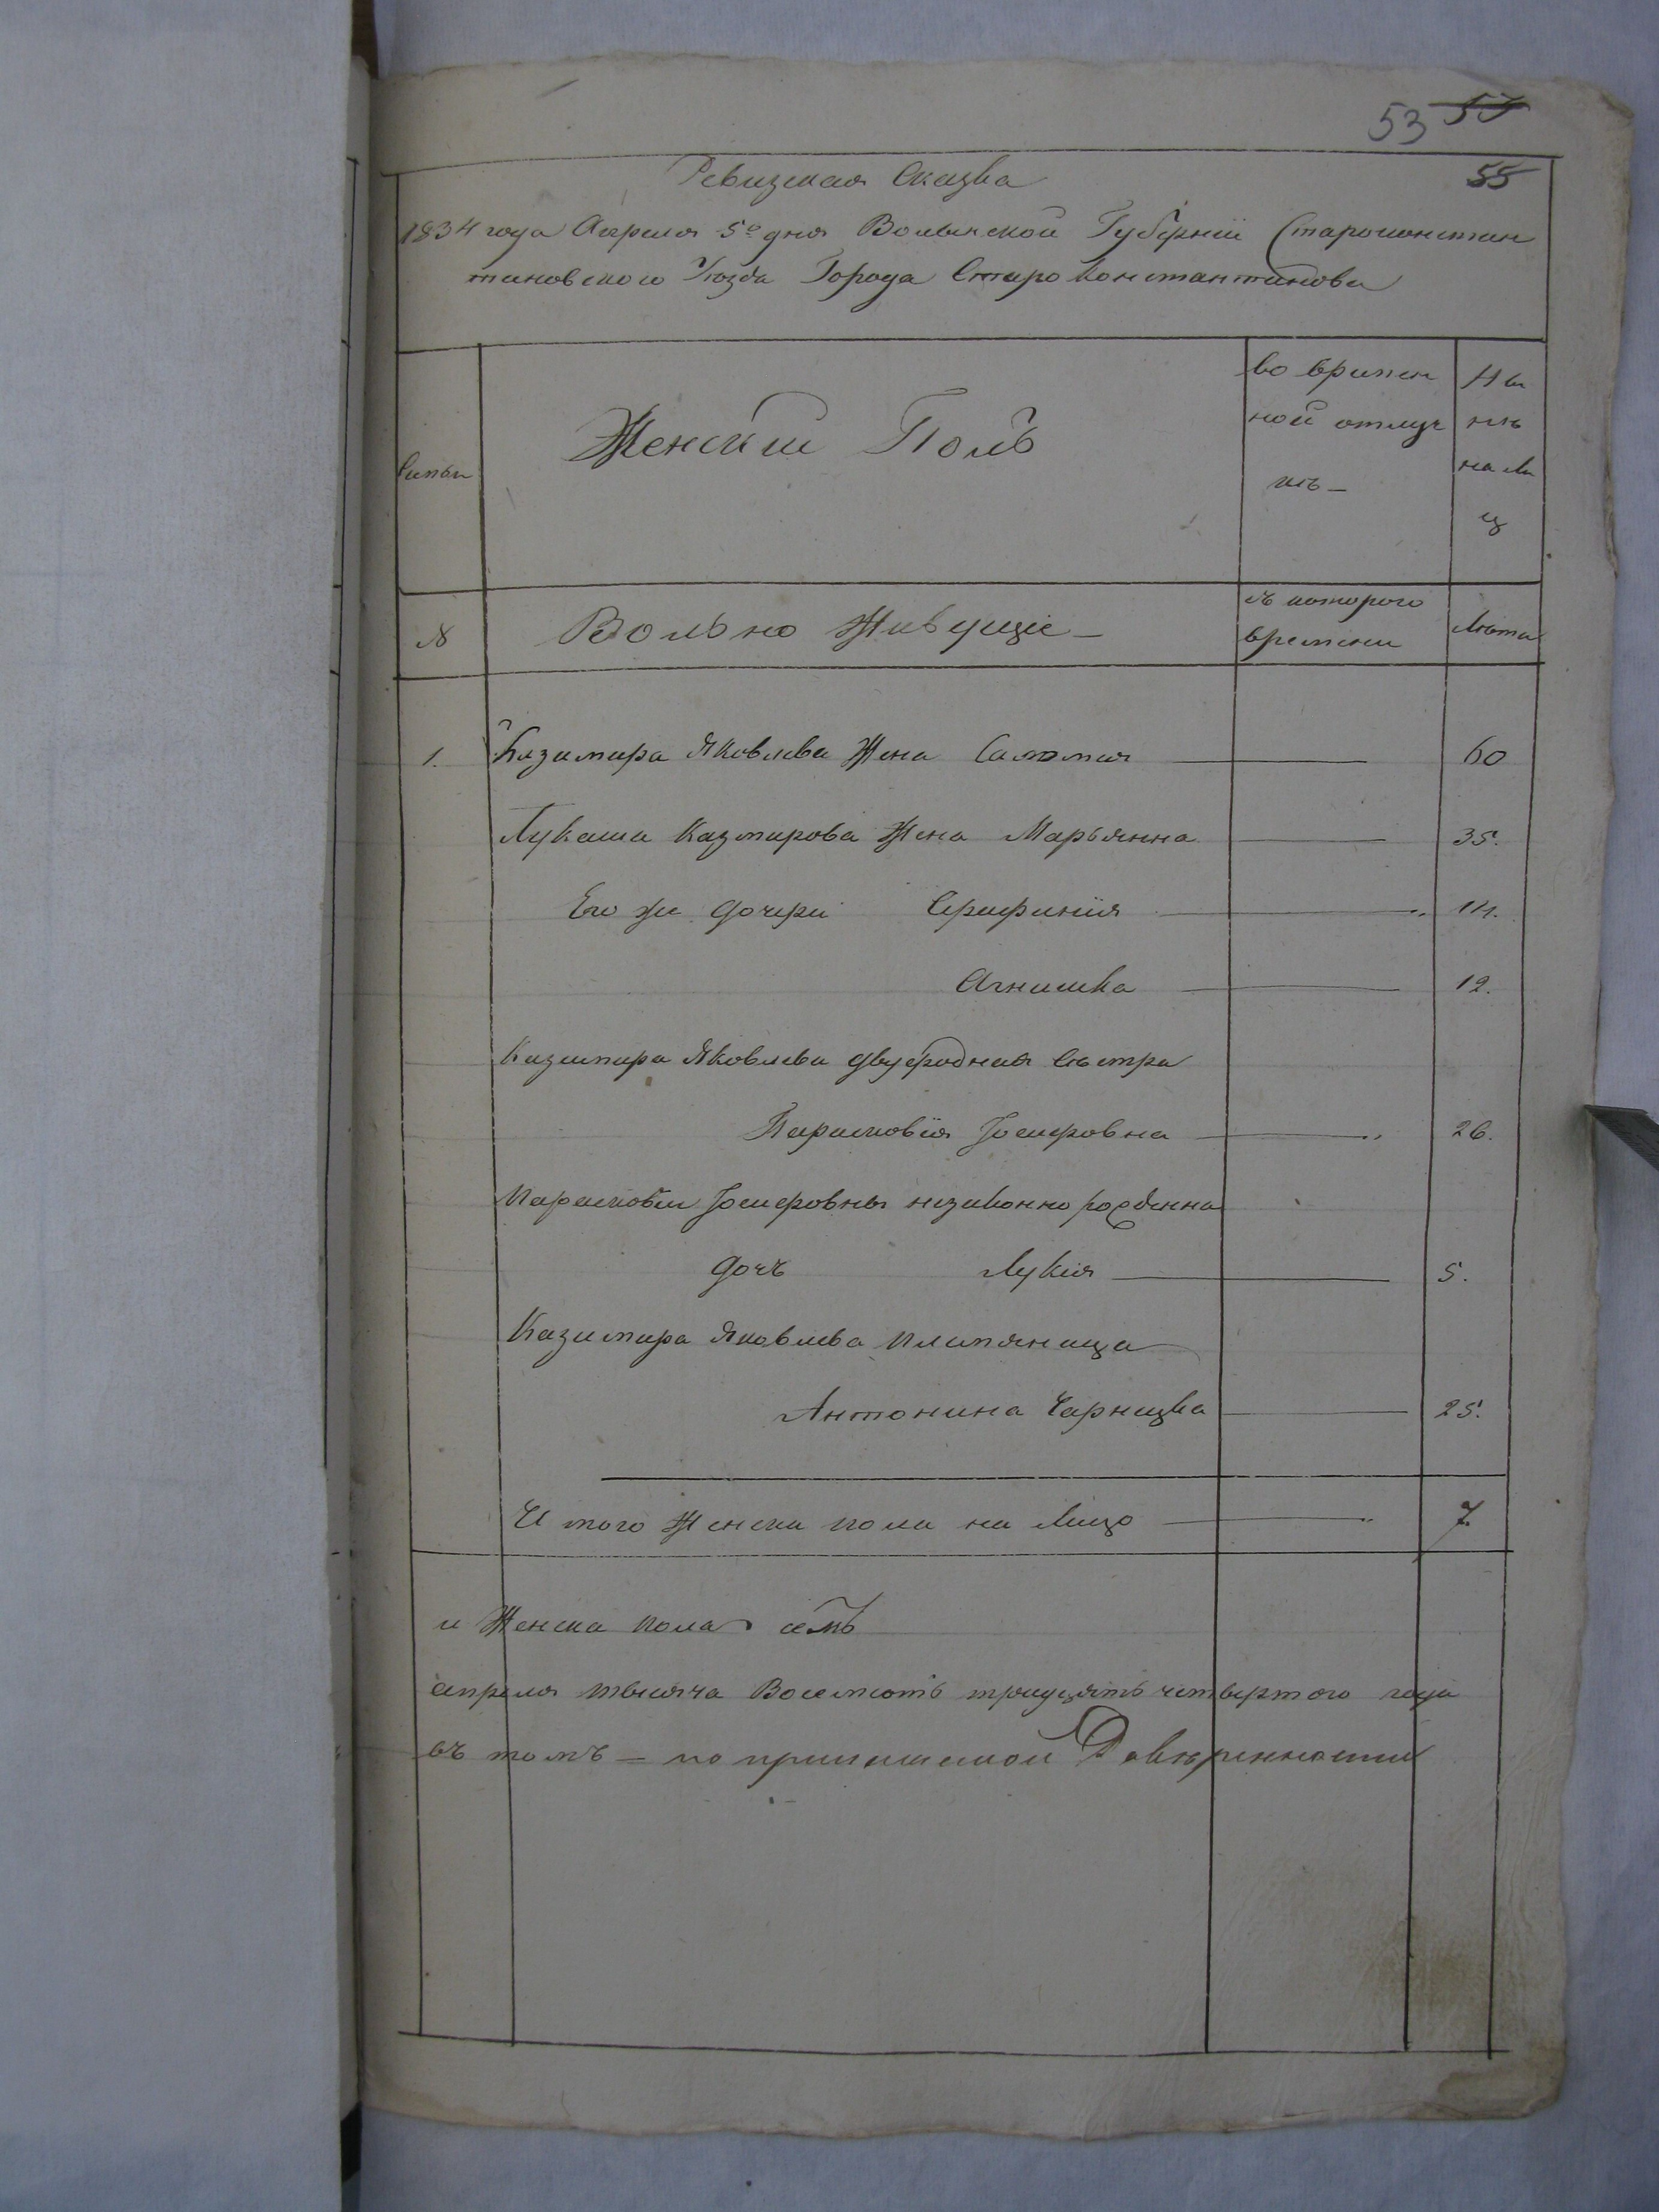 53 57
Ревизская Сказка 55
1834 года Апреля 5º дня Волынской Губернiи Староконстан
тиновского Уѣзда Города Старо Константинова
во времен Ны
ной отлуч нѣ
Женскiй Полъ на ли
Семьи кѣ – ц
съ которого
№ Вольно Живущiе – времени Лѣта
1. Казимира Яковлева Жена Саломия 60
Лукаша Казмирова Жена Марьянна 35.
Его же дочери Серафинiя 14.
Агнишка 12.
Казимира Яковлева двуеродная Сѣстра
Парасковiя Iосифовна 26.
Парасковiи Iосифовны незаконно рожденна
дочъ Лукiя 5.
Казимира Яковлева племяница
Антонина Чарнецка 25.
И того Женска пола на Лицо 7
и Женска пола семъ
апреля тысяча Восемсотъ тридцять четвертого года
въ томъ – по приписаной Довѣренности